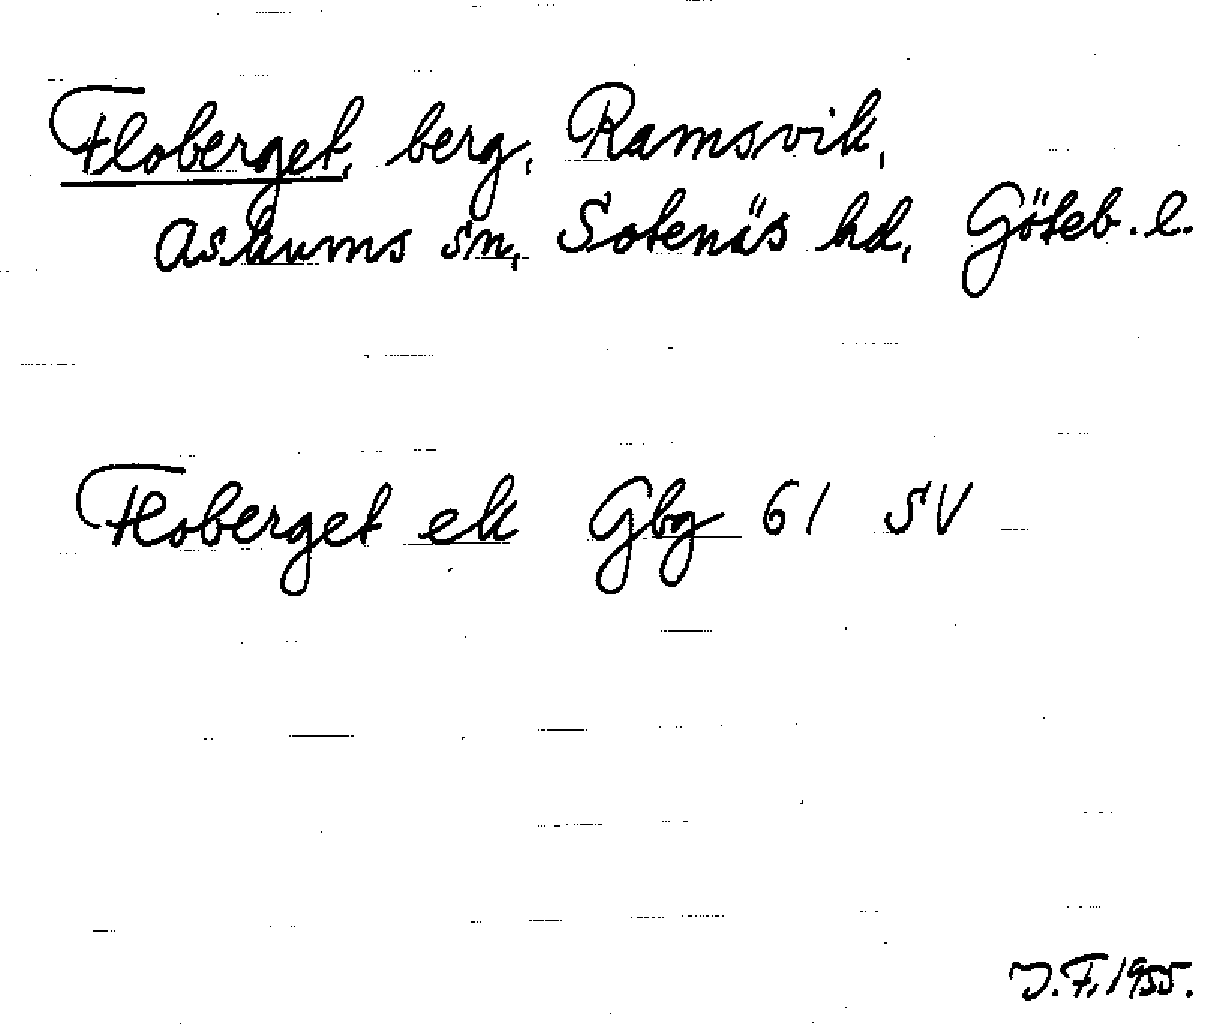 Floberget, berg, Ramsvik,
Askums sn, Sotenäs hd, Göteb. l.
Floberget ek Gbg 61 SV
J. F. 1955.